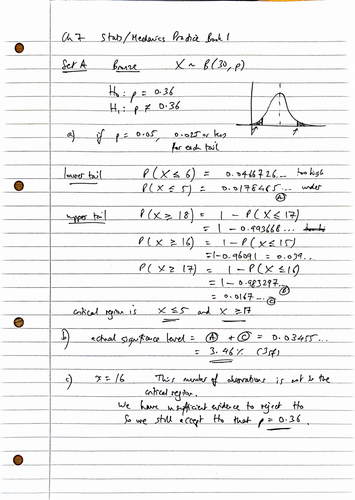 Ch 7 Stats/Mechanics Practice Book 1
Set A Bronze X ~ B(30, p)
H₀: p = 0.36
H₁: p ≠ 0.36
a) if p = 0.05, 0.025 or less
for each tail
lower tail P(X ≤ 6) = 0.0466726... too high
P(X ≤ 5) = 0.0178485... under
Ⓐ
upper tail P(X ≥ 18) = 1 - P(X ≤ 17)
= 1 - 0.993668...
P(X ≥ 16) = 1 - P(X ≤ 15)
= 1 - 0.96091 = 0.039...
P(X ≥ 17) = 1 - P(X ≤ 16)
= 1 - 0.983297... Ⓑ
= 0.0167... Ⓒ
critical region is X ≤ 5 and X ≥ 17
b) actual significance level = Ⓐ + Ⓒ = 0.03455...
= 3.46% (3sf)
c) x = 16 This number of observations is not in the
critical region.
We have insufficient evidence to reject H₀
So we still accept H₀ that p = 0.36.